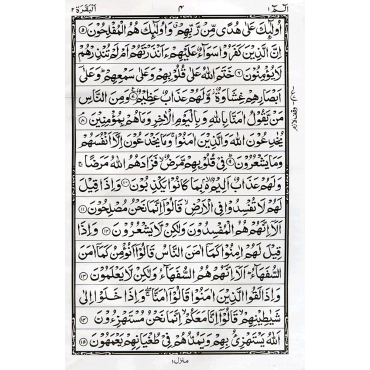 الٓمّٓ ١ ٤ اَلْبَقَرَة ٢
اُولٰٓئِكَ عَلٰى هُدًى مِّنْ رَّبِّهِمْ وَاُولٰٓئِكَ هُمُ الْمُفْلِحُوْنَ ۝٥
اِنَّ الَّذِيْنَ كَفَرُوْا سَوَآءٌ عَلَيْهِمْ ءَاَنْذَرْتَهُمْ اَمْ لَمْ تُنْذِرْهُمْ
لَا يُؤْمِنُوْنَ ۝٦ خَتَمَ اللّٰهُ عَلٰى قُلُوْبِهِمْ وَعَلٰى سَمْعِهِمْ وَعَلٰٓى
اَبْصَارِهِمْ غِشَاوَةٌ وَّلَهُمْ عَذَابٌ عَظِيْمٌ ۝٧ وَمِنَ النَّاسِ
مَنْ يَّقُوْلُ اٰمَنَّا بِاللّٰهِ وَبِالْيَوْمِ الْاٰخِرِ وَمَا هُمْ بِمُؤْمِنِيْنَ ۝٨
يُخٰدِعُوْنَ اللّٰهَ وَالَّذِيْنَ اٰمَنُوْا وَمَا يَخْدَعُوْنَ اِلَّآ اَنْفُسَهُمْ
وَمَا يَشْعُرُوْنَ ۝٩ فِيْ قُلُوْبِهِمْ مَّرَضٌ فَزَادَهُمُ اللّٰهُ مَرَضًا
وَلَهُمْ عَذَابٌ اَلِيْمٌۢ بِمَا كَانُوْا يَكْذِبُوْنَ ۝١٠ وَاِذَا قِيْلَ
لَهُمْ لَا تُفْسِدُوْا فِي الْاَرْضِ قَالُوْٓا اِنَّمَا نَحْنُ مُصْلِحُوْنَ ۝١١
اَلَآ اِنَّهُمْ هُمُ الْمُفْسِدُوْنَ وَلٰكِنْ لَّا يَشْعُرُوْنَ ۝١٢ وَاِذَا
قِيْلَ لَهُمْ اٰمِنُوْا كَمَآ اٰمَنَ النَّاسُ قَالُوْٓا اَنُؤْمِنُ كَمَآ اٰمَنَ
السُّفَهَآءُ اَلَآ اِنَّهُمْ هُمُ السُّفَهَآءُ وَلٰكِنْ لَّا يَعْلَمُوْنَ ۝١٣
وَاِذَا لَقُوا الَّذِيْنَ اٰمَنُوْا قَالُوْٓا اٰمَنَّا وَاِذَا خَلَوْا اِلٰى
شَيٰطِيْنِهِمْ قَالُوْٓا اِنَّا مَعَكُمْ اِنَّمَا نَحْنُ مُسْتَهْزِءُوْنَ ۝١٤
اَللّٰهُ يَسْتَهْزِئُ بِهِمْ وَيَمُدُّهُمْ فِيْ طُغْيَانِهِمْ يَعْمَهُوْنَ ۝١٥
منزل ١